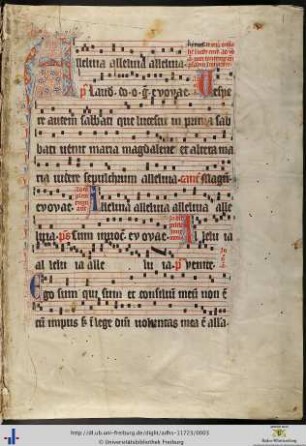 Alleluia alleluia alleluia
ps Laud. do. q. evovae. Vespe
re autem sabbati que lucescit in prima sab
bati venit maria magdalene et altera ma
ria videre sepulchrum alleluia. Magni
evovae. Alleluia alleluia alleluia alle
luia. ps Cum invoc. evovae Al lelu ia
al lelu ia alle lu ia. ps Venite.
Ego sum qui sum et consilium meum non e
cum impiis s lege dni voluntas mea e alla.
http://dl.ub.uni-freiburg.de/diglit/adhs-11723/0003
© Universitätsbibliothek Freiburg
Baden-Württemberg